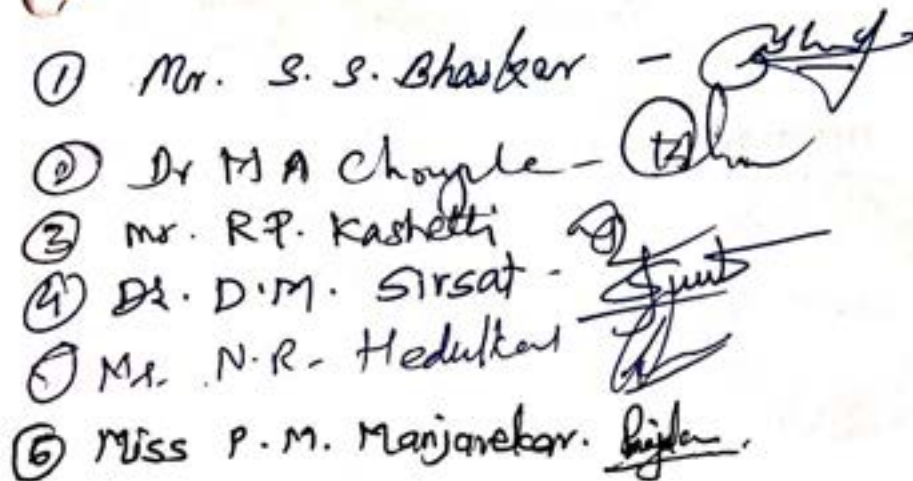 ① Mr. S. S. Bhaskar -
② Dr M A Chougule -
③ mr. R.P. Kashetti
④ Dr. D.M. Sirsat -
⑤ Mr. N.R. Hedulkar
⑥ Miss P.M. Manjarekar.